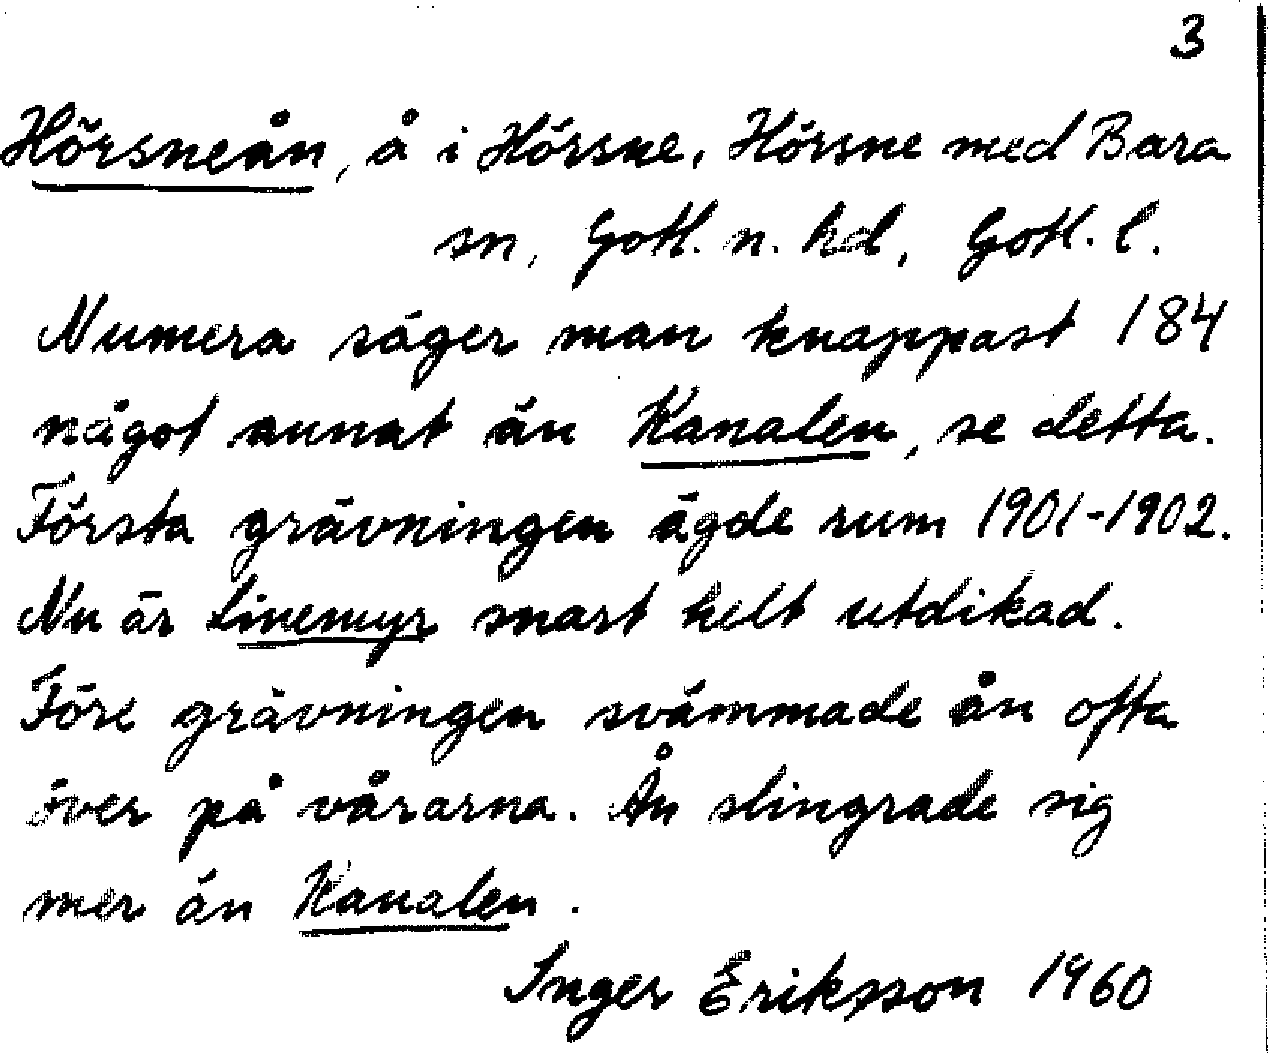 3
Hörsneån, å i Hörsne, Hörsne med Bara
sn, Gotl. n. hd, Gotl. l.
Numera säger man knappast 184
något annat än Kanalen, se detta.
Första grävningen ägde rum 1901-1902.
Nu är Linemyr snart helt utdikad.
Före grävningen svämmade ån ofta
över på vårarna. Ån slingrade sig
mer än Kanalen.
Inger Eriksson 1960